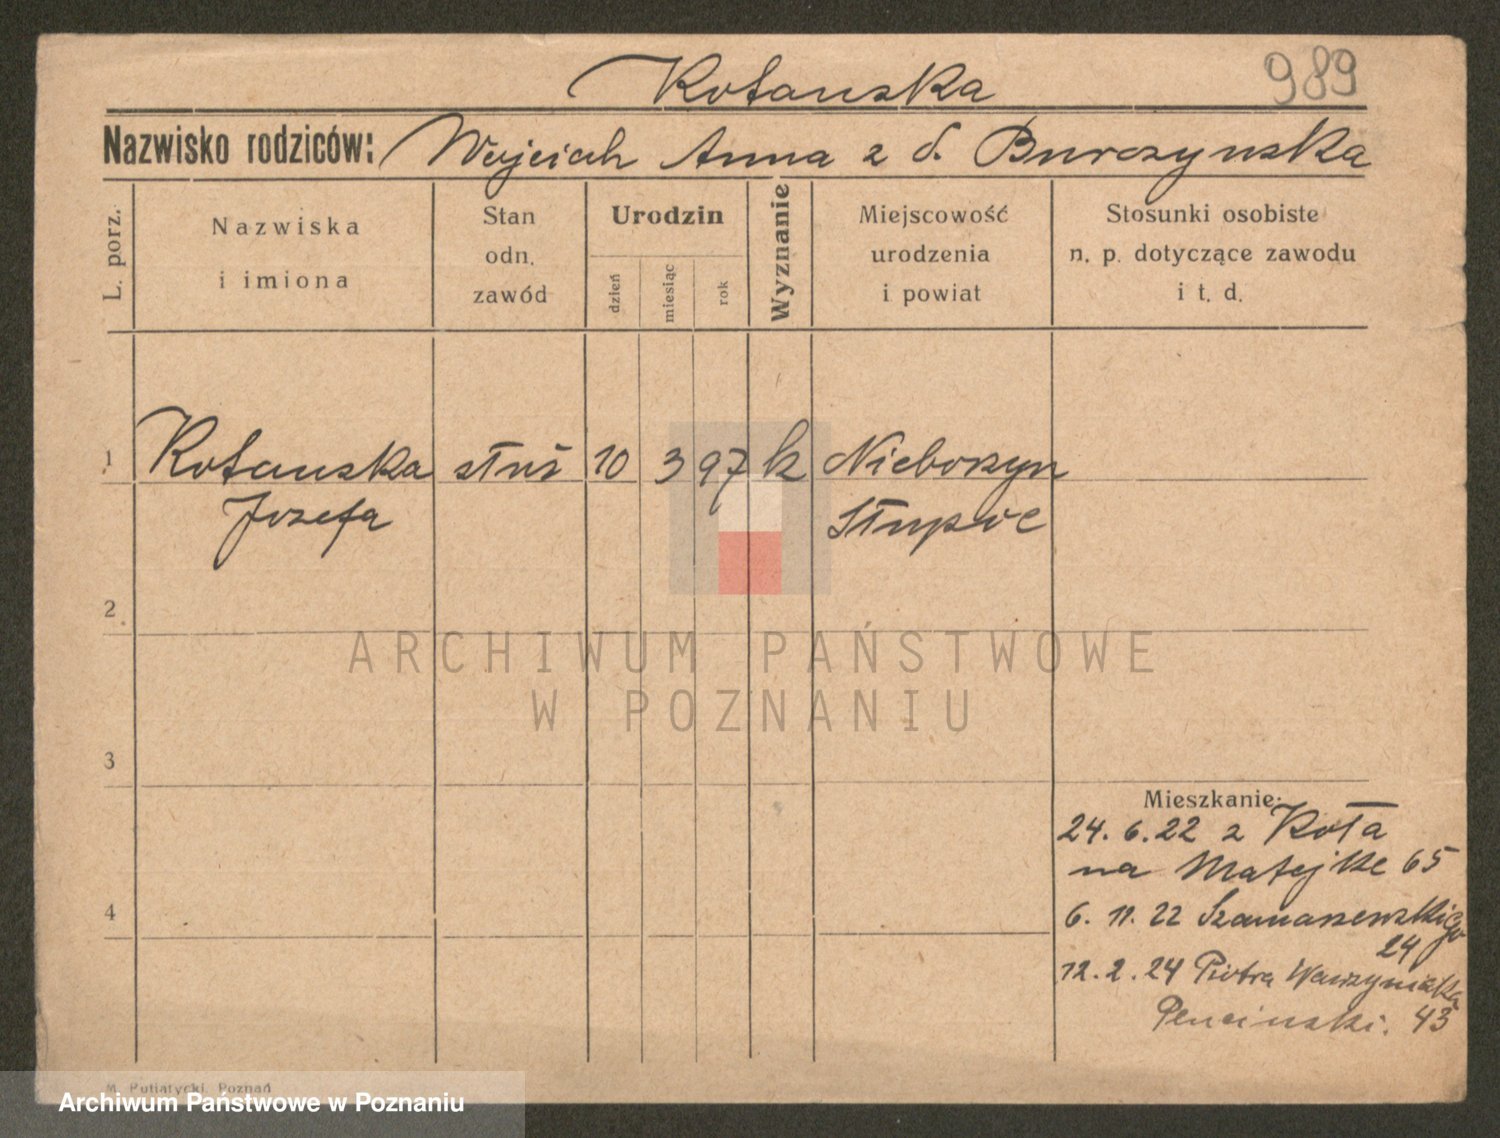 Kotanska
989
Nazwisko rodziców: Wojciech Anna z d. Burczynska
L. porz.
Nazwiska
i imiona
Stan
odn.
zawód
Urodzin
dzień
miesiąc
rok
Wyznanie
Miejscowość
urodzenia
i powiat
Stosunki osobiste
n. p. dotyczące zawodu
i t. d.
1 Kotanska służ 10 3 97 k Nieborzyn
Jozefa Słupce
2
ARCHIWUM PAŃSTWOWE
W POZNANIU
3
Mieszkanie:
24. 6. 22 z Koła
na Matejke 65
4
6. 11. 22 Szamarzewskiego
24
12. 2. 24 Piotra Wawrzyniaka
43
M. Putiatycki, Poznań
Archiwum Państwowe w Poznaniu